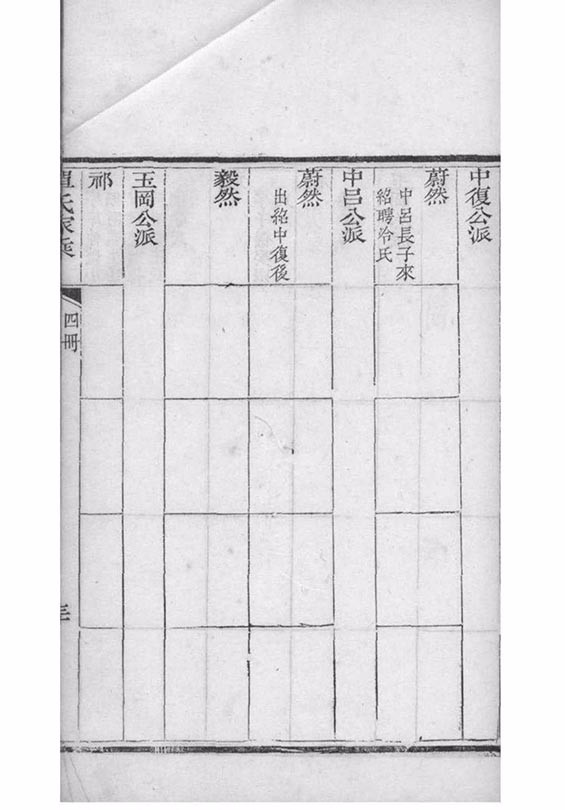 中復公派
蔚然
中呂長子來
紹聘冷氏
中呂公派
蔚然
出紹中復後
毅然
玉岡公派
祁
氏家乘
四冊